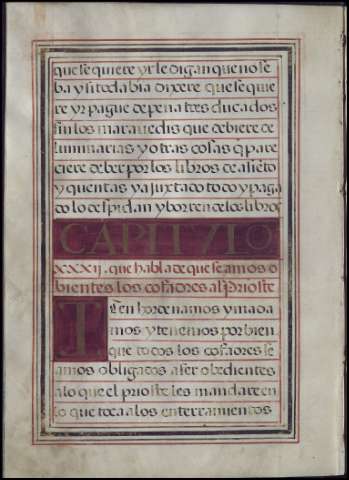 que se quiere yr le digan que no se
ba y si todabia dixere que se quie
re yr pague de pena tres ducados
sin los maravedis que debiere de
luminarias y otras cosas q̄ pare
ciere deber por los libros de asiēto
y quentas y ajuxtado todo y paga
do lo despidan y borren de los libros
CAPITVLO
XXXIJ. que habla de que se amos o
bientes los cofadres al Prioste
ITen hordenamos y mãda
mos y tenemos por bien
que todos los cofadres se
amos obligados a ser obedientes
a lo que el prioste les mandare en
lo que toca a los enterramientos